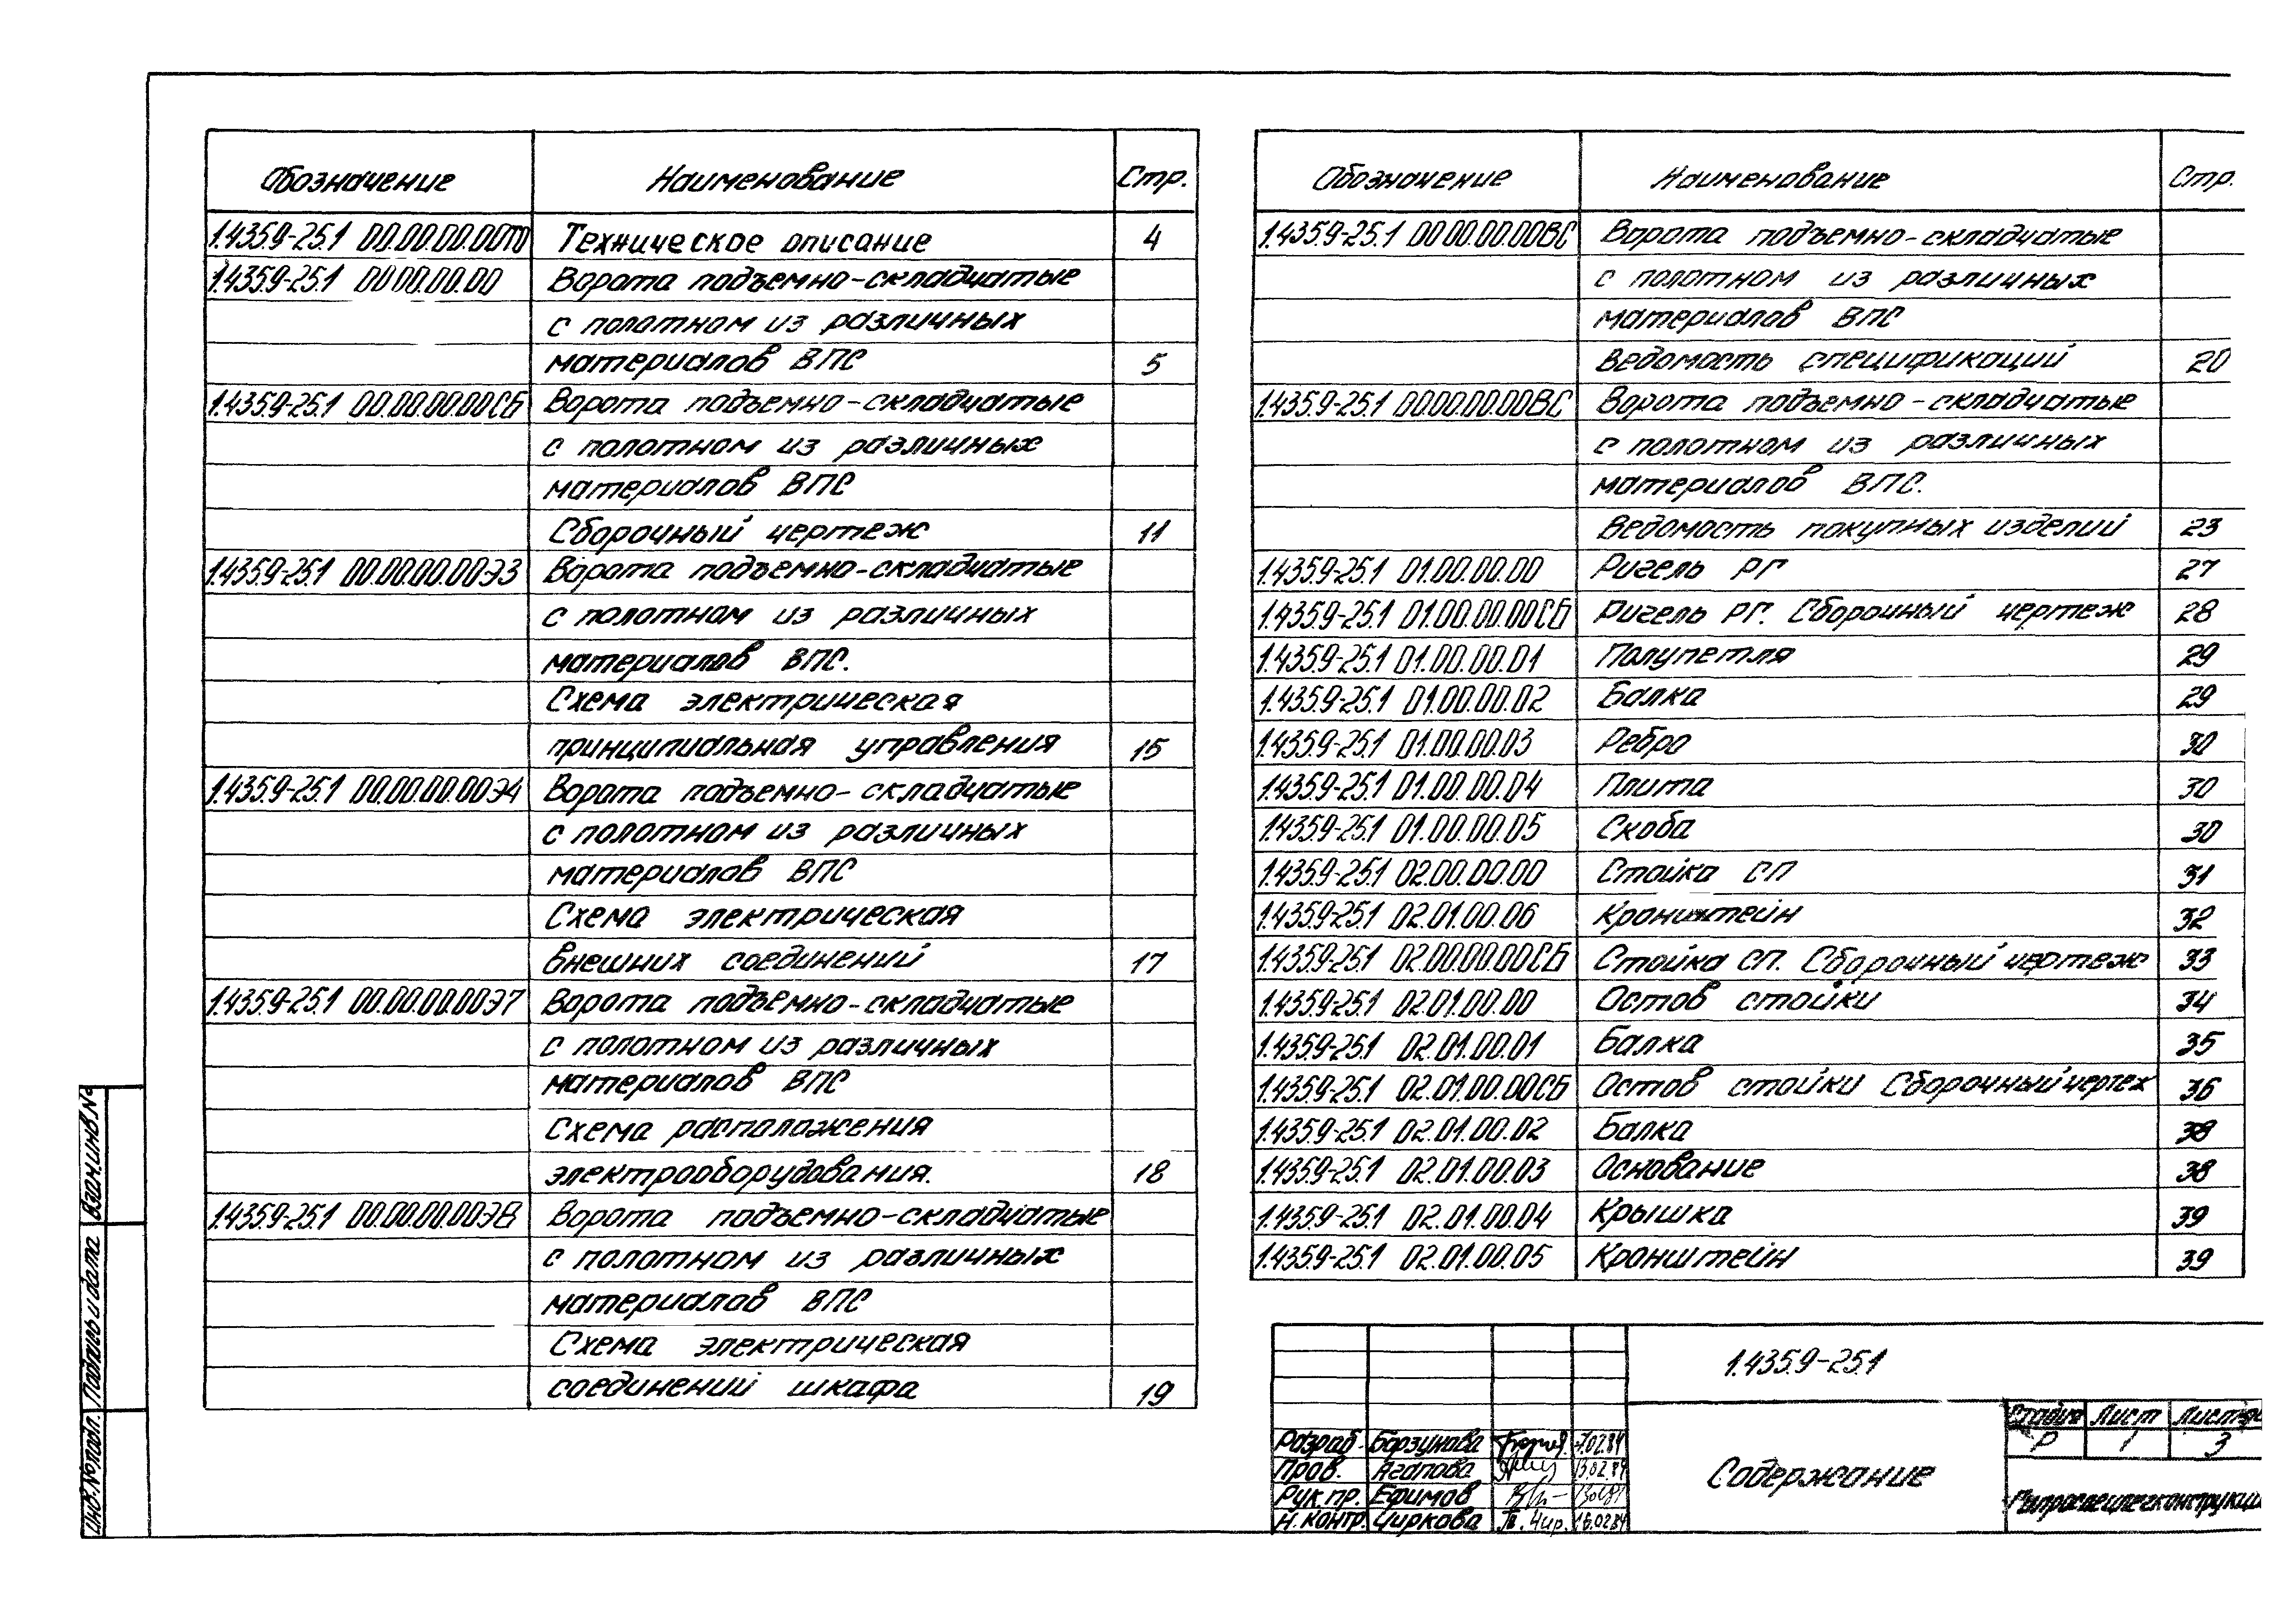 Обозначение Наименование Стр.
1.435.9-25.1 00.00.00.00ТО Техническое описание 4
1.435.9-25.1 00.00.00.00 Ворота подъемно-складчатые
с полотном из различных
материалов ВПС 5
1.435.9-25.1 00.00.00.00СБ Ворота подъемно-складчатые
с полотном из различных
материалов ВПС
Сборочный чертеж 11
1.435.9-25.1 00.00.00.00Э3 Ворота подъемно-складчатые
с полотном из различных
материалов ВПС.
Схема электрическая
принципиальная управления 15
1.435.9-25.1 00.00.00.00Э4 Ворота подъемно-складчатые
с полотном из различных
материалов ВПС
Схема электрическая
внешних соединений 17
1.435.9-25.1 00.00.00.00Э7 Ворота подъемно-складчатые
с полотном из различных
материалов ВПС
Схема расположения
электрооборудования. 18
1.435.9-25.1 Ворота подъемно-складчатые
с полотном из различных
материалов ВПС
Схема электрическая
соединений шкафа 19
Обозначение Наименование Стр.
1.435.9-25.1 00.00.00.00ВС Ворота подъемно-складчатые
с полотном из различных
материалов ВПС
Ведомость спецификаций 20
1.435.9-25.1 00.00.00.00ВС Ворота подъемно-складчатые
с полотном из различных
материалов ВПС.
Ведомость покупных изделий 23
1.435.9-25.1 01.00.00.00 Ригель РГ 27
1.435.9-25.1 01.00.00.00СБ Ригель РГ. Сборочный чертеж 28
1.435.9-25.1 01.00.00.01 Полупетля 29
1.435.9-25.1 01.00.00.02 Балка 29
1.435.9-25.1 01.00.00.03 Ребро 30
1.435.9-25.1 01.00.00.04 Плита 30
1.435.9-25.1 01.00.00.05 Скоба 30
1.435.9-25.1 02.00.00.00 Стойка СП 31
1.435.9-25.1 02.01.00.06 Кронштейн 32
1.435.9-25.1 02.00.00.00СБ Стойка СП. Сборочный чертеж 33
1.435.9-25.1 02.01.00.00 Остов стойки 34
1.435.9-25.1 02.01.00.01 Балка 35
1.435.9-25.1 02.01.00.00СБ Остов стойки Сборочный чертеж 36
1.435.9-25.1 02.01.00.02 Балка 38
1.435.9-25.1 02.01.00.03 Основание 38
1.435.9-25.1 02.01.00.04 Крышка 39
1.435.9-25.1 02.01.00.05 Кронштейн 39
Взам.инв.№
Подпись и дата
Инв.№подл.
1.435.9-25.1
Стадия Лист Листов
Р 1 3
Содержание
Разраб. Барзунова
Пров. Агапова 13.02.84
Рук.пр. Ефимов
Н.контр. Чиркова 16.02.84